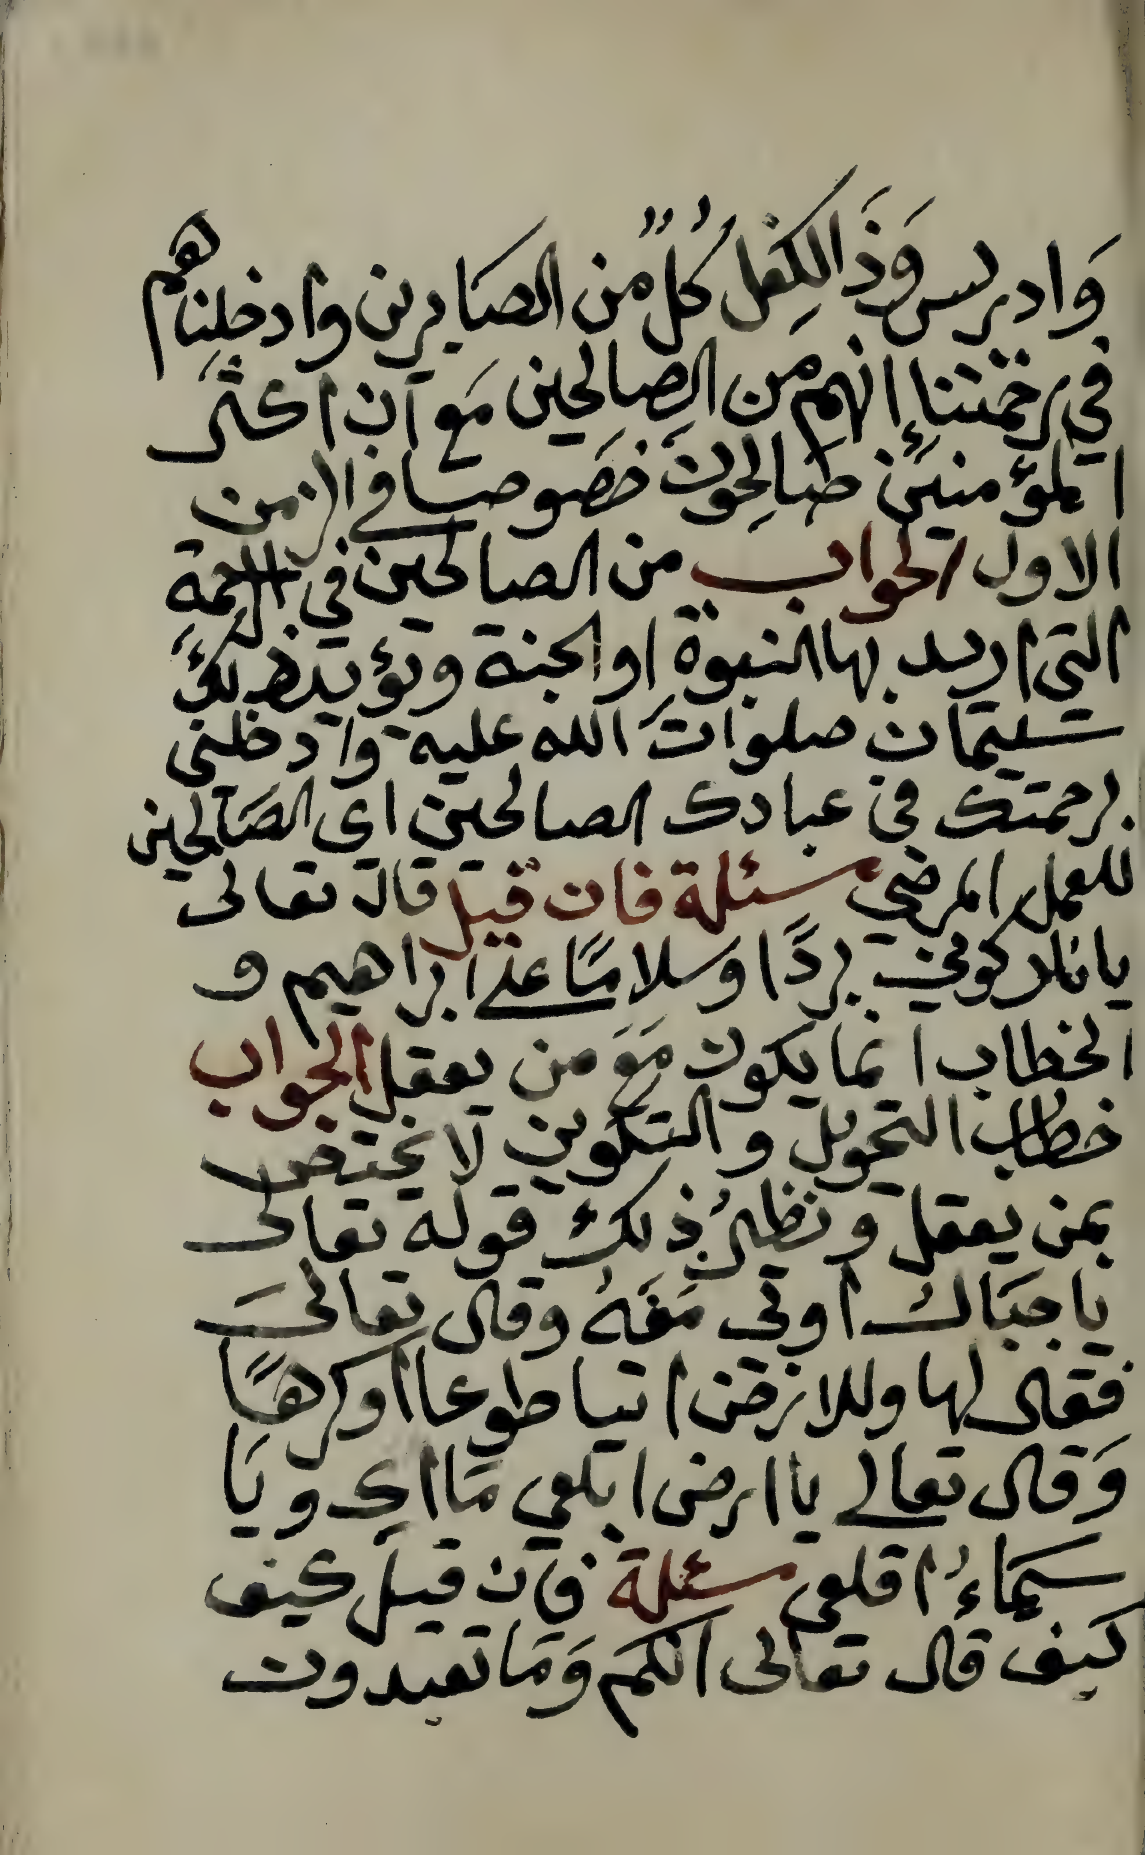 وَادريس وَذَا الكِفْل كُلٌّ من الصَابرين وادخلناهم
في رحمتنا إنهم من الصالحين مَع ان اكثر
المؤمنين صَالِحون خصَوصا في الزمن
الاول الجواب من الصالحين في الرحمة
التي اريد بها النبوة او الجنة ويؤيد ذلك
سليمان صلوات الله عليه وادخلني
برحمتك في عبادك الصالحين اى الصَالحين
للعمل المرضي سئلة فان قيل قال تعالى
يا نار كوني بردًا وسلامًا على ابراهيم و
الخطاب انما يكون مَع من يعقل الجواب
خطاب التحويل والتكوين لا يختص
بمن يعقل ونظيرُ ذلك قوله تعالى
يا جبَال اوبى مَعَهُ وقال تعالىَ
فقال لها وللارض اتيا طوعا اوكرهًا
وَقال تعالى يا ارض ابلعي مَااك ويَا
سَمَاءُ اقلعى سئلة فان قيل كيف
كيف قال تعالى انكم وَمَا تعبدون